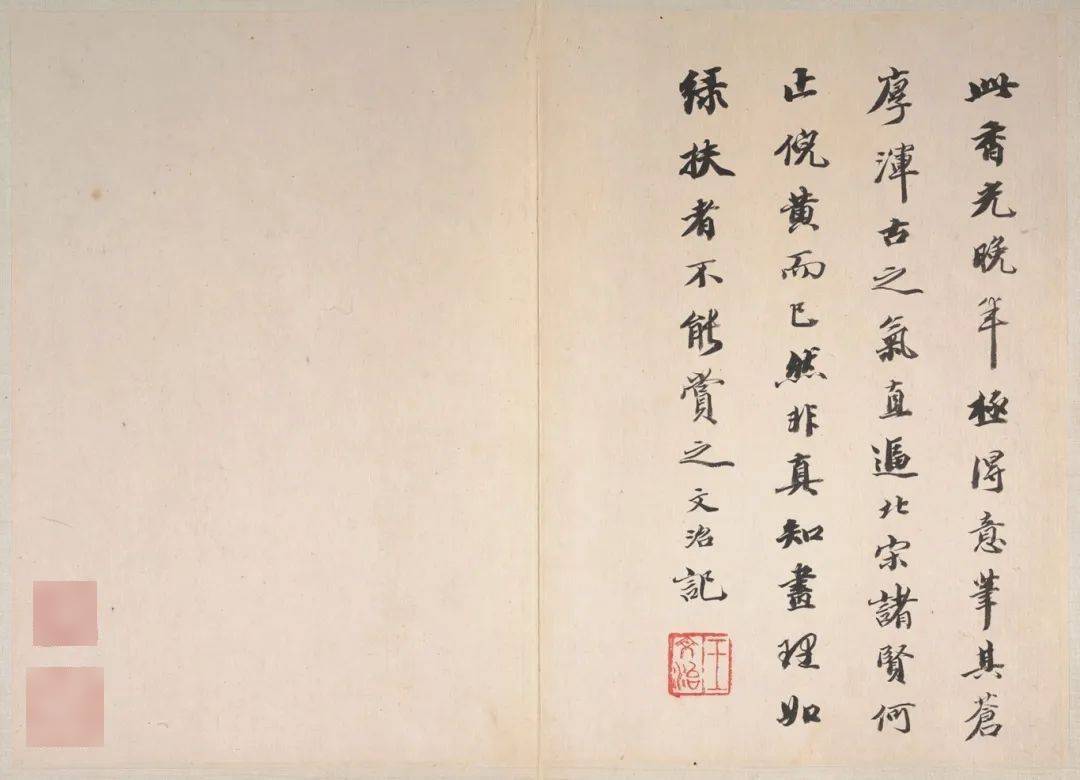 此香光晚年極得意筆其蒼
厚渾古之氣直逼北宋諸賢何
止倪黃而已然非真知畫理如
綠扶者不能賞之文治記
王文治